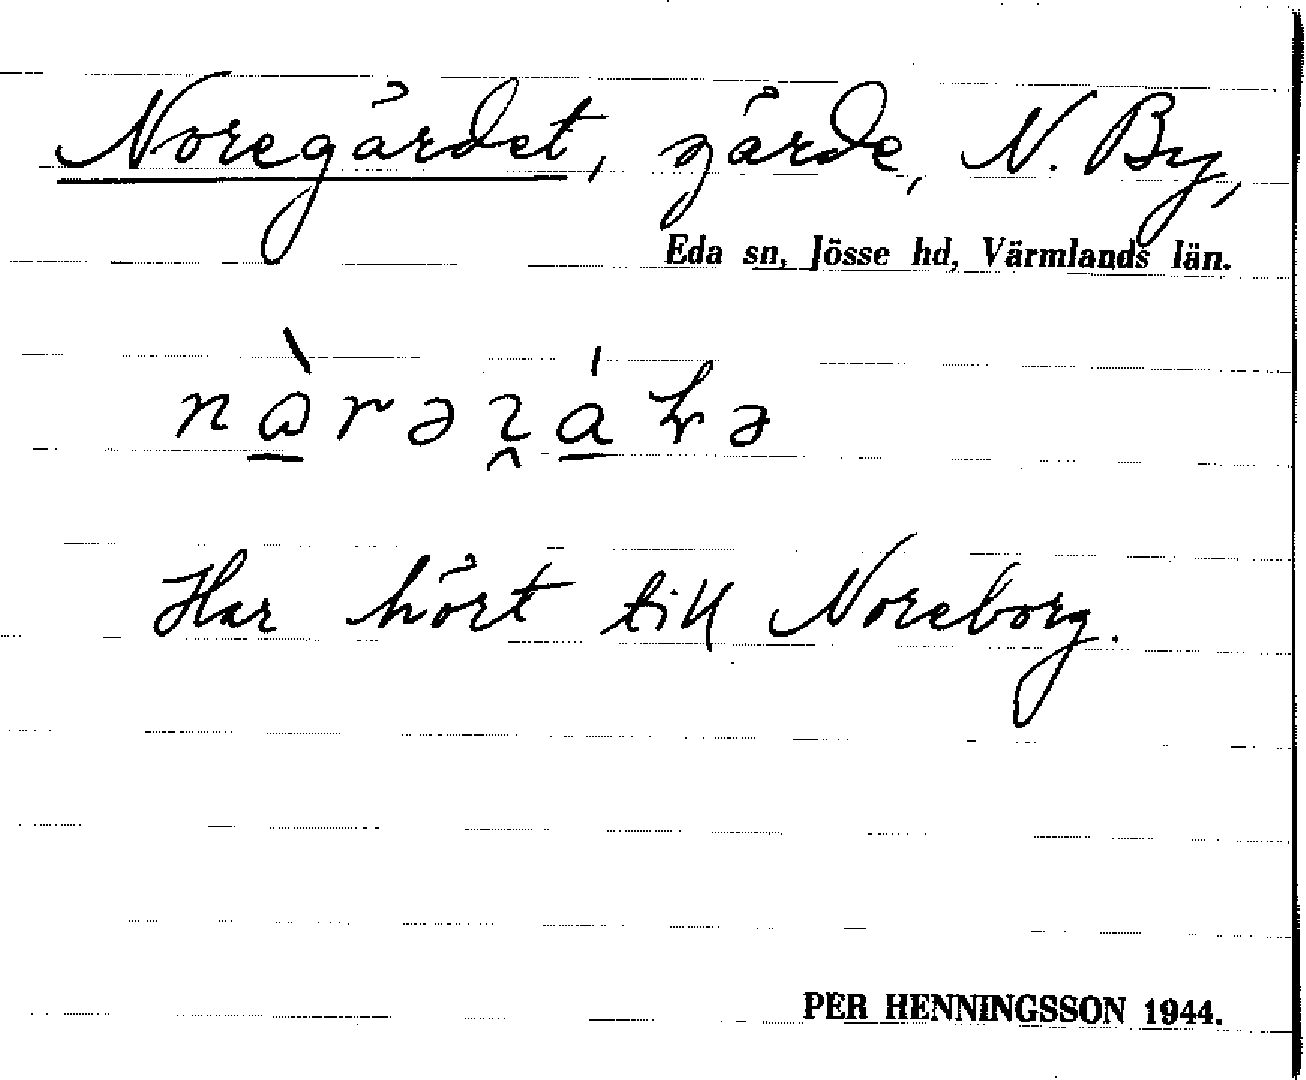 Noregärdet, gärde, N. By,
Eda sn, Jösse hd, Värmlands län.
Har hört till Noreborg.
PER HENNINGSSON 1944.